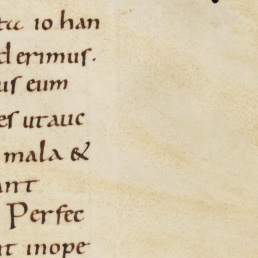 io han
erimus.
us eum
es ut auc
mala &
ant
Perfec
nt inope